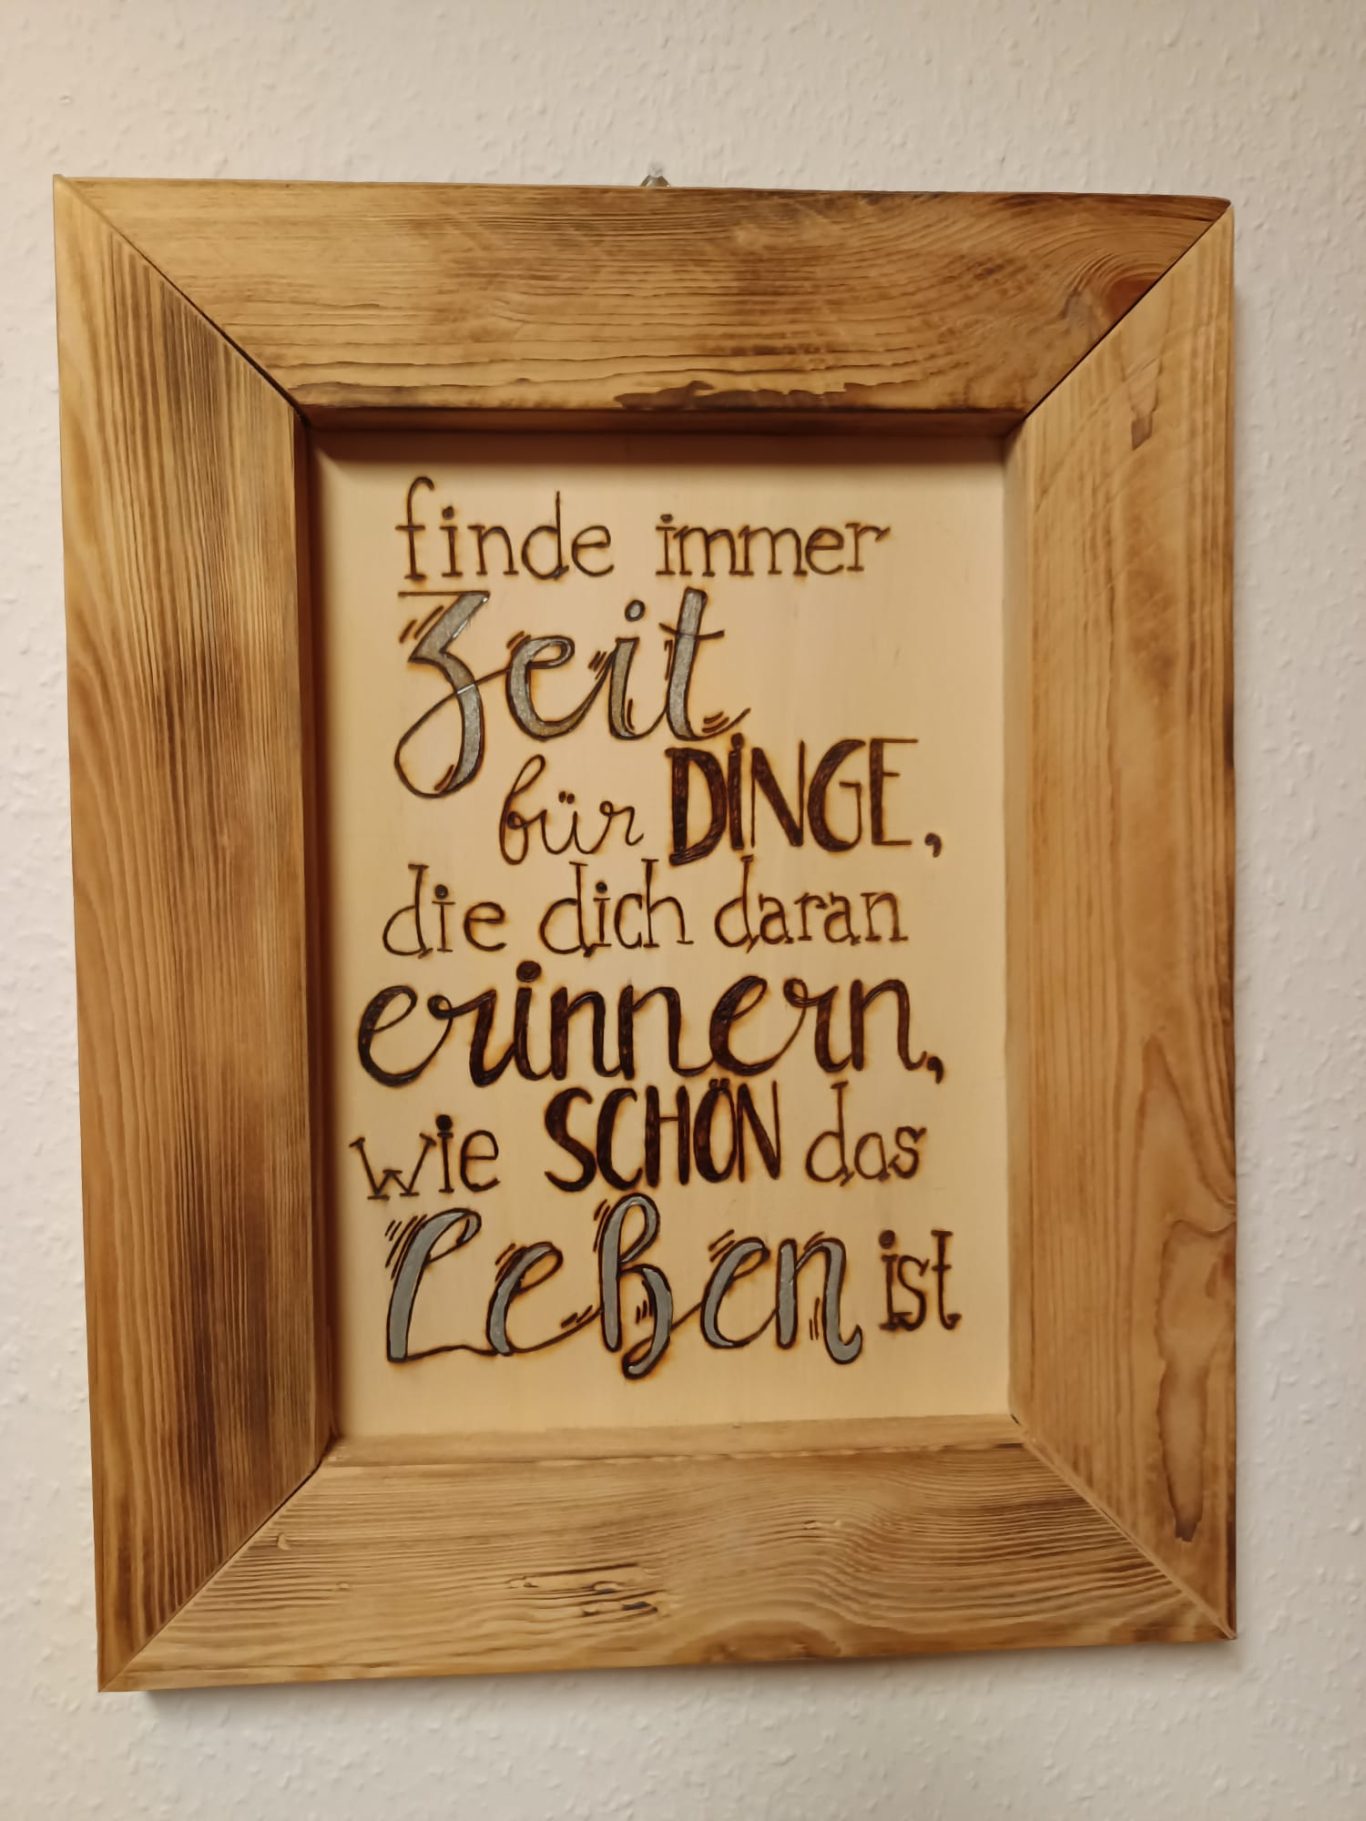 finde immer
Zeit
für DINGE,
die dich daran
erinnern,
wie SCHÖN das
Leben ist